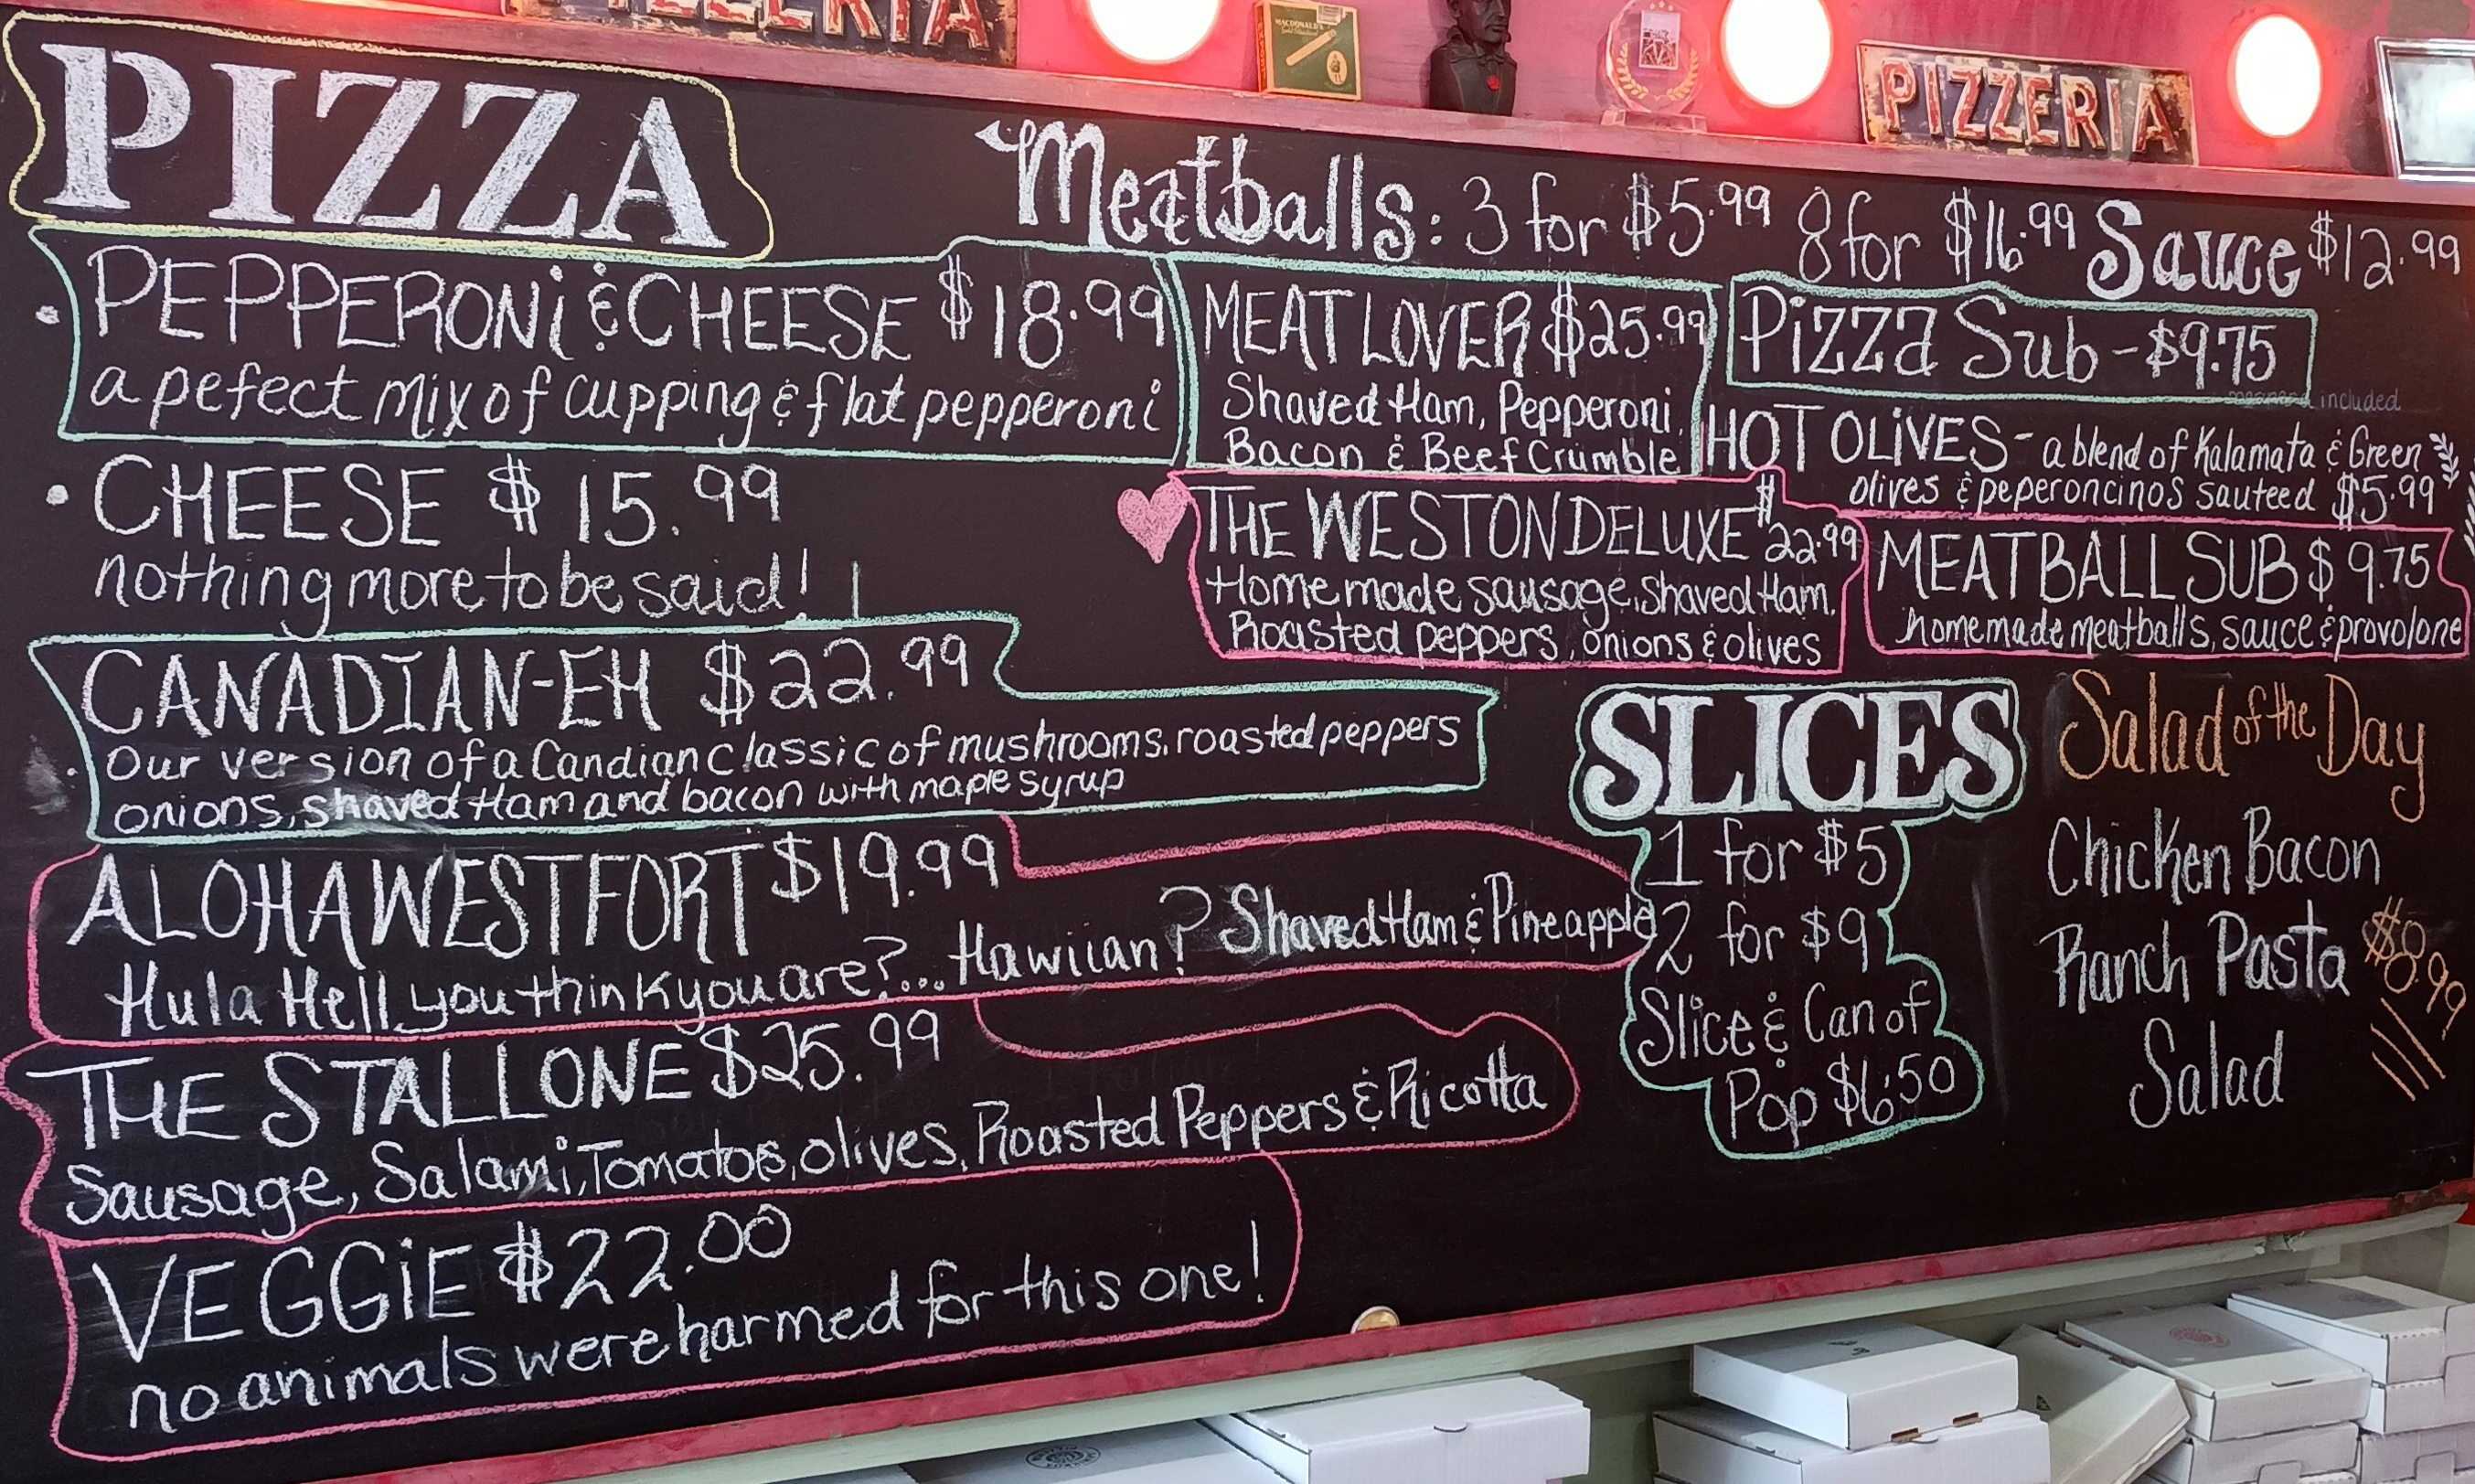 PIZZERIA
MACDONALD'S
PIZZERIA
PIZZA
Meatballs: 3 for $5.99 8 for $16.99 Sauce $12.99
PEPPERONi & CHEESE $18.99
a pefect mix of cupping & flat pepperoni
CHEESE $15.99
nothing more to be said!
CANADIAN-EH $22.99
Our version of a Candian classic of mushrooms, roasted peppers
onions, shaved Ham and bacon with maple syrup
ALOHA WESTFORT $19.99
Hula Hell you think you are?... Hawiian? Shaved Ham & Pineapple
THE STALLONE $25.99
Sausage, Salami, Tomatoes, olives, Roasted Peppers & Ricotta
VEGGiE $22.00
no animals were harmed for this one!
MEAT LOVER $25.99
Shaved Ham, Pepperoni,
Bacon & Beef Crumble
THE WESTON DELUXE $22.99
Homemade sausage, Shaved Ham,
Roasted peppers, onions & olives
Pizza Sub - $9.75
included
HOT OLiVES - a blend of Kalamata & Green
olives & peperoncinos sauteed $5.99
MEATBALL SUB $9.75
homemade meatballs, sauce & provolone
SLICES
1 for $5
2 for $9
Slice & Can of
Pop $6.50
Salad of the Day
Chicken Bacon
Ranch Pasta
Salad
$8.99